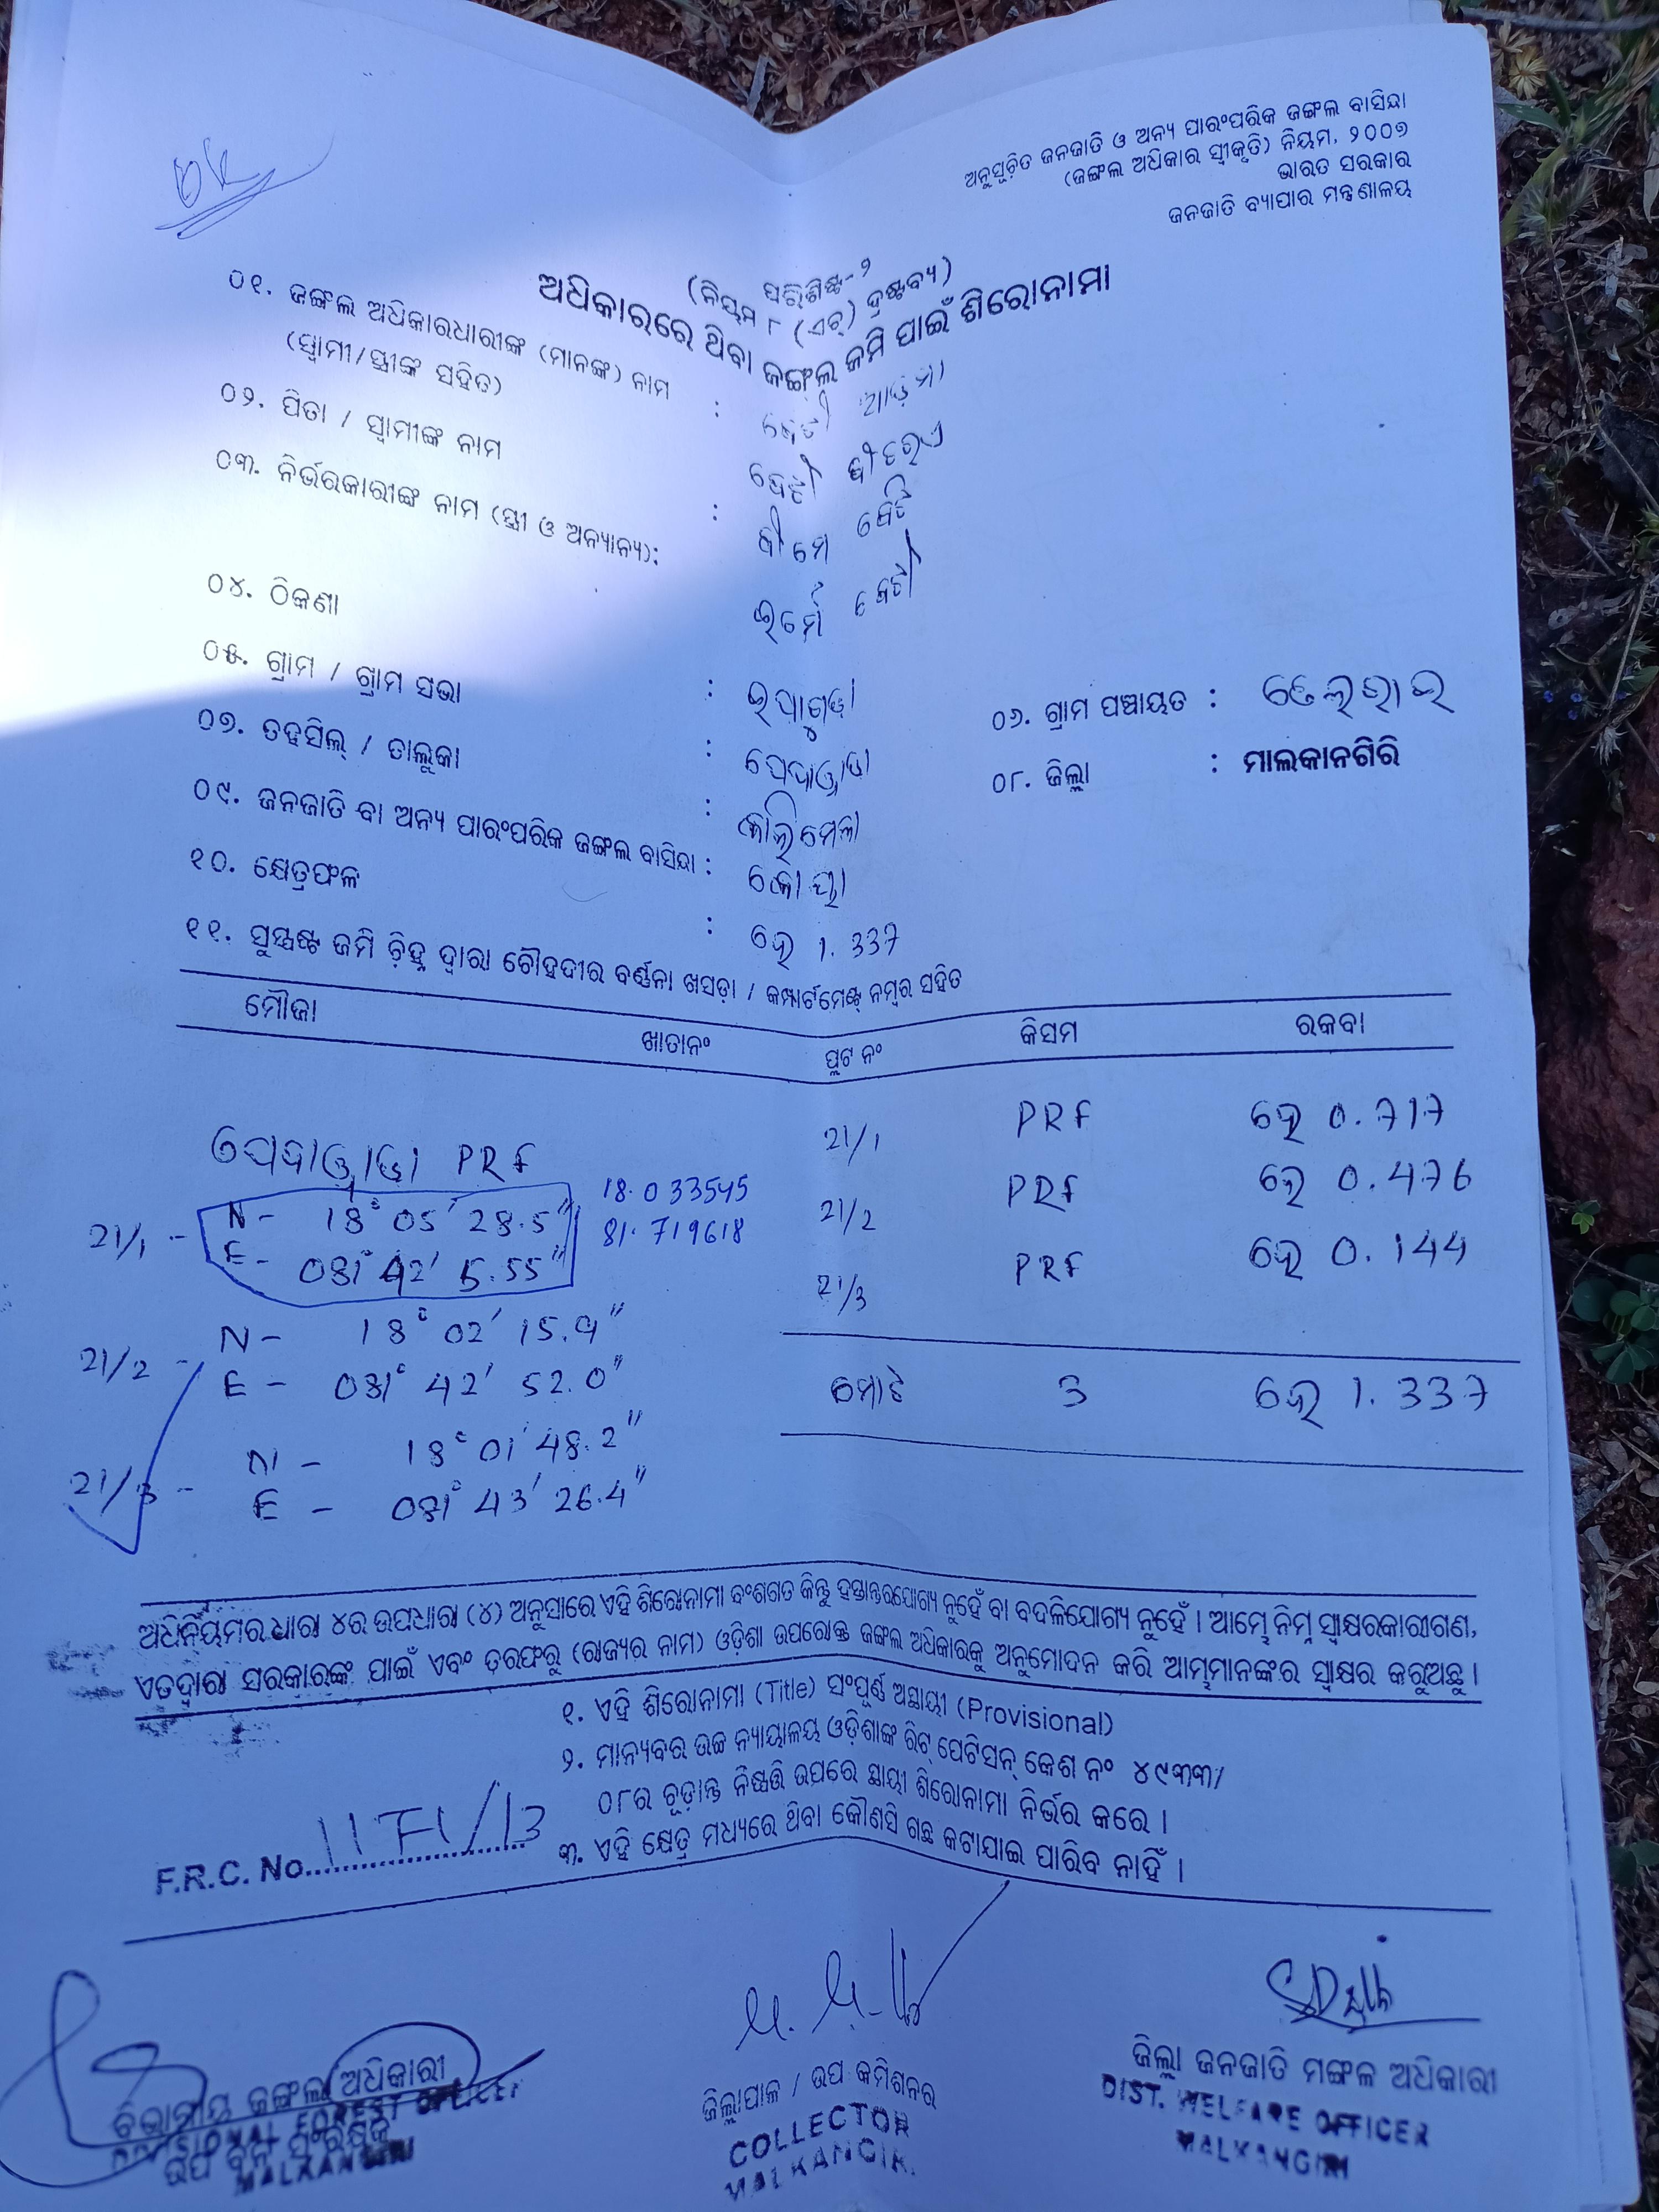 ଅନୁସୂଚିତ ଜନଜାତି ଓ ଅନ୍ୟ ପାରଂପରିକ ଜଙ୍ଗଲ ବାସିନ୍ଦା
(ଜଙ୍ଗଲ ଅଧିକାର ସ୍ୱୀକୃତି) ନିୟମ, ୨୦୦୭
ଭାରତ ସରକାର
ଜନଜାତି ବ୍ୟାପାର ମନ୍ତ୍ରଣାଳୟ
ପରିଶିଷ୍ଟ-୨
(ନିୟମ ୮ (ଏଚ୍) ଦ୍ରଷ୍ଟବ୍ୟ)
ଅଧିକାରରେ ଥିବା ଜଙ୍ଗଲ ଜମି ପାଇଁ ଶିରୋନାମା
୦୧. ଜଙ୍ଗଲ ଅଧିକାରଧାରୀଙ୍କ (ମାନଙ୍କ) ନାମ :
(ସ୍ୱାମୀ/ସ୍ତ୍ରୀଙ୍କ ସହିତ)
୦୨. ପିତା / ସ୍ୱାମୀଙ୍କ ନାମ :
୦୩. ନିର୍ଭରକାରୀଙ୍କ ନାମ (ସ୍ତ୍ରୀ ଓ ଅନ୍ୟାନ୍ୟ):
୦୪. ଠିକଣା :
୦୫. ଗ୍ରାମ / ଗ୍ରାମ ସଭା :
୦୬. ଗ୍ରାମ ପଞ୍ଚାୟତ :
୦୭. ତହସିଲ୍ / ତାଲୁକା : କାଲିମେଳା
୦୮. ଜିଲ୍ଲା : ମାଲକାନଗିରି
୦୯. ଜନଜାତି ବା ଅନ୍ୟ ପାରଂପରିକ ଜଙ୍ଗଲ ବାସିନ୍ଦା : କୋୟା
୧୦. କ୍ଷେତ୍ରଫଳ : ହେ 1.337
୧୧. ସୁସ୍ପଷ୍ଟ ଜମି ଚିହ୍ନ ଦ୍ୱାରା ଚୌହଦୀର ବର୍ଣ୍ଣନା ଖସଡ଼ା / କମ୍ପାର୍ଟମେଣ୍ଟ୍ ନମ୍ବର ସହିତ
ମୌଜା ଖାତାନଂ ପ୍ଲଟ ନଂ କିସମ ରକବା
PRF
21/1 PRF ହେ 0.717
21/2 PRF ହେ 0.476
21/3 PRF ହେ 0.144
ମୋଟ 3 ହେ 1.337
21/1 - N - 18° 05' 28.5" 18.033545
E - 081° 42' 5.55" 81.719618
21/2 - N - 18° 02' 15.9"
E - 081° 42' 52.0"
21/3 - N - 18° 01' 48.2"
E - 081° 43' 26.4"
ଅଧିନିୟମର ଧାରା ୪ର ଉପଧାରା (୪) ଅନୁସାରେ ଏହି ଶିରୋନାମା ବଂଶଗତ କିନ୍ତୁ ହସ୍ତାନ୍ତରଯୋଗ୍ୟ ନୁହେଁ ବା ବଦଳିଯୋଗ୍ୟ ନୁହେଁ । ଆମ୍ଭେ ନିମ୍ନ ସ୍ୱାକ୍ଷରକାରୀଗଣ,
ଏତଦ୍ୱାରା ସରକାରଙ୍କ ପାଇଁ ଏବଂ ତରଫରୁ (ରାଜ୍ୟର ନାମ) ଓଡ଼ିଶା ଉପରୋକ୍ତ ଜଙ୍ଗଲ ଅଧିକାରକୁ ଅନୁମୋଦନ କରି ଆମ୍ଭମାନଙ୍କର ସ୍ୱାକ୍ଷର କରୁଅଛୁ ।
୧. ଏହି ଶିରୋନାମା (Title) ସଂପୂର୍ଣ୍ଣ ଅସ୍ଥାୟୀ (Provisional)
୨. ମାନ୍ୟବର ଉଚ୍ଚ ନ୍ୟାୟାଳୟ ଓଡ଼ିଶାଙ୍କ ରିଟ୍ ପେଟିସନ୍ କେଶ ନଂ ୪୯୩୩/
୦୮ର ଚୂଡ଼ାନ୍ତ ନିଷ୍ପତ୍ତି ଉପରେ ସ୍ଥାୟୀ ଶିରୋନାମା ନିର୍ଭର କରେ ।
୩. ଏହି କ୍ଷେତ୍ର ମଧ୍ୟରେ ଥିବା କୌଣସି ଗଛ କଟାଯାଇ ପାରିବ ନାହିଁ ।
F.R.C. No.
ବିଭାଗୀୟ ଜଙ୍ଗଲ ଅଧିକାରୀ
DIVISIONAL FOREST OFFICER
ଉପ ବନ ସଂରକ୍ଷକ
MALKANGIRI
ଜିଲ୍ଲାପାଳ / ଉପ କମିଶନର
COLLECTOR
MALKANGIRI
ଜିଲ୍ଲା ଜନଜାତି ମଙ୍ଗଳ ଅଧିକାରୀ
DIST. WELFARE OFFICER
MALKANGIRI